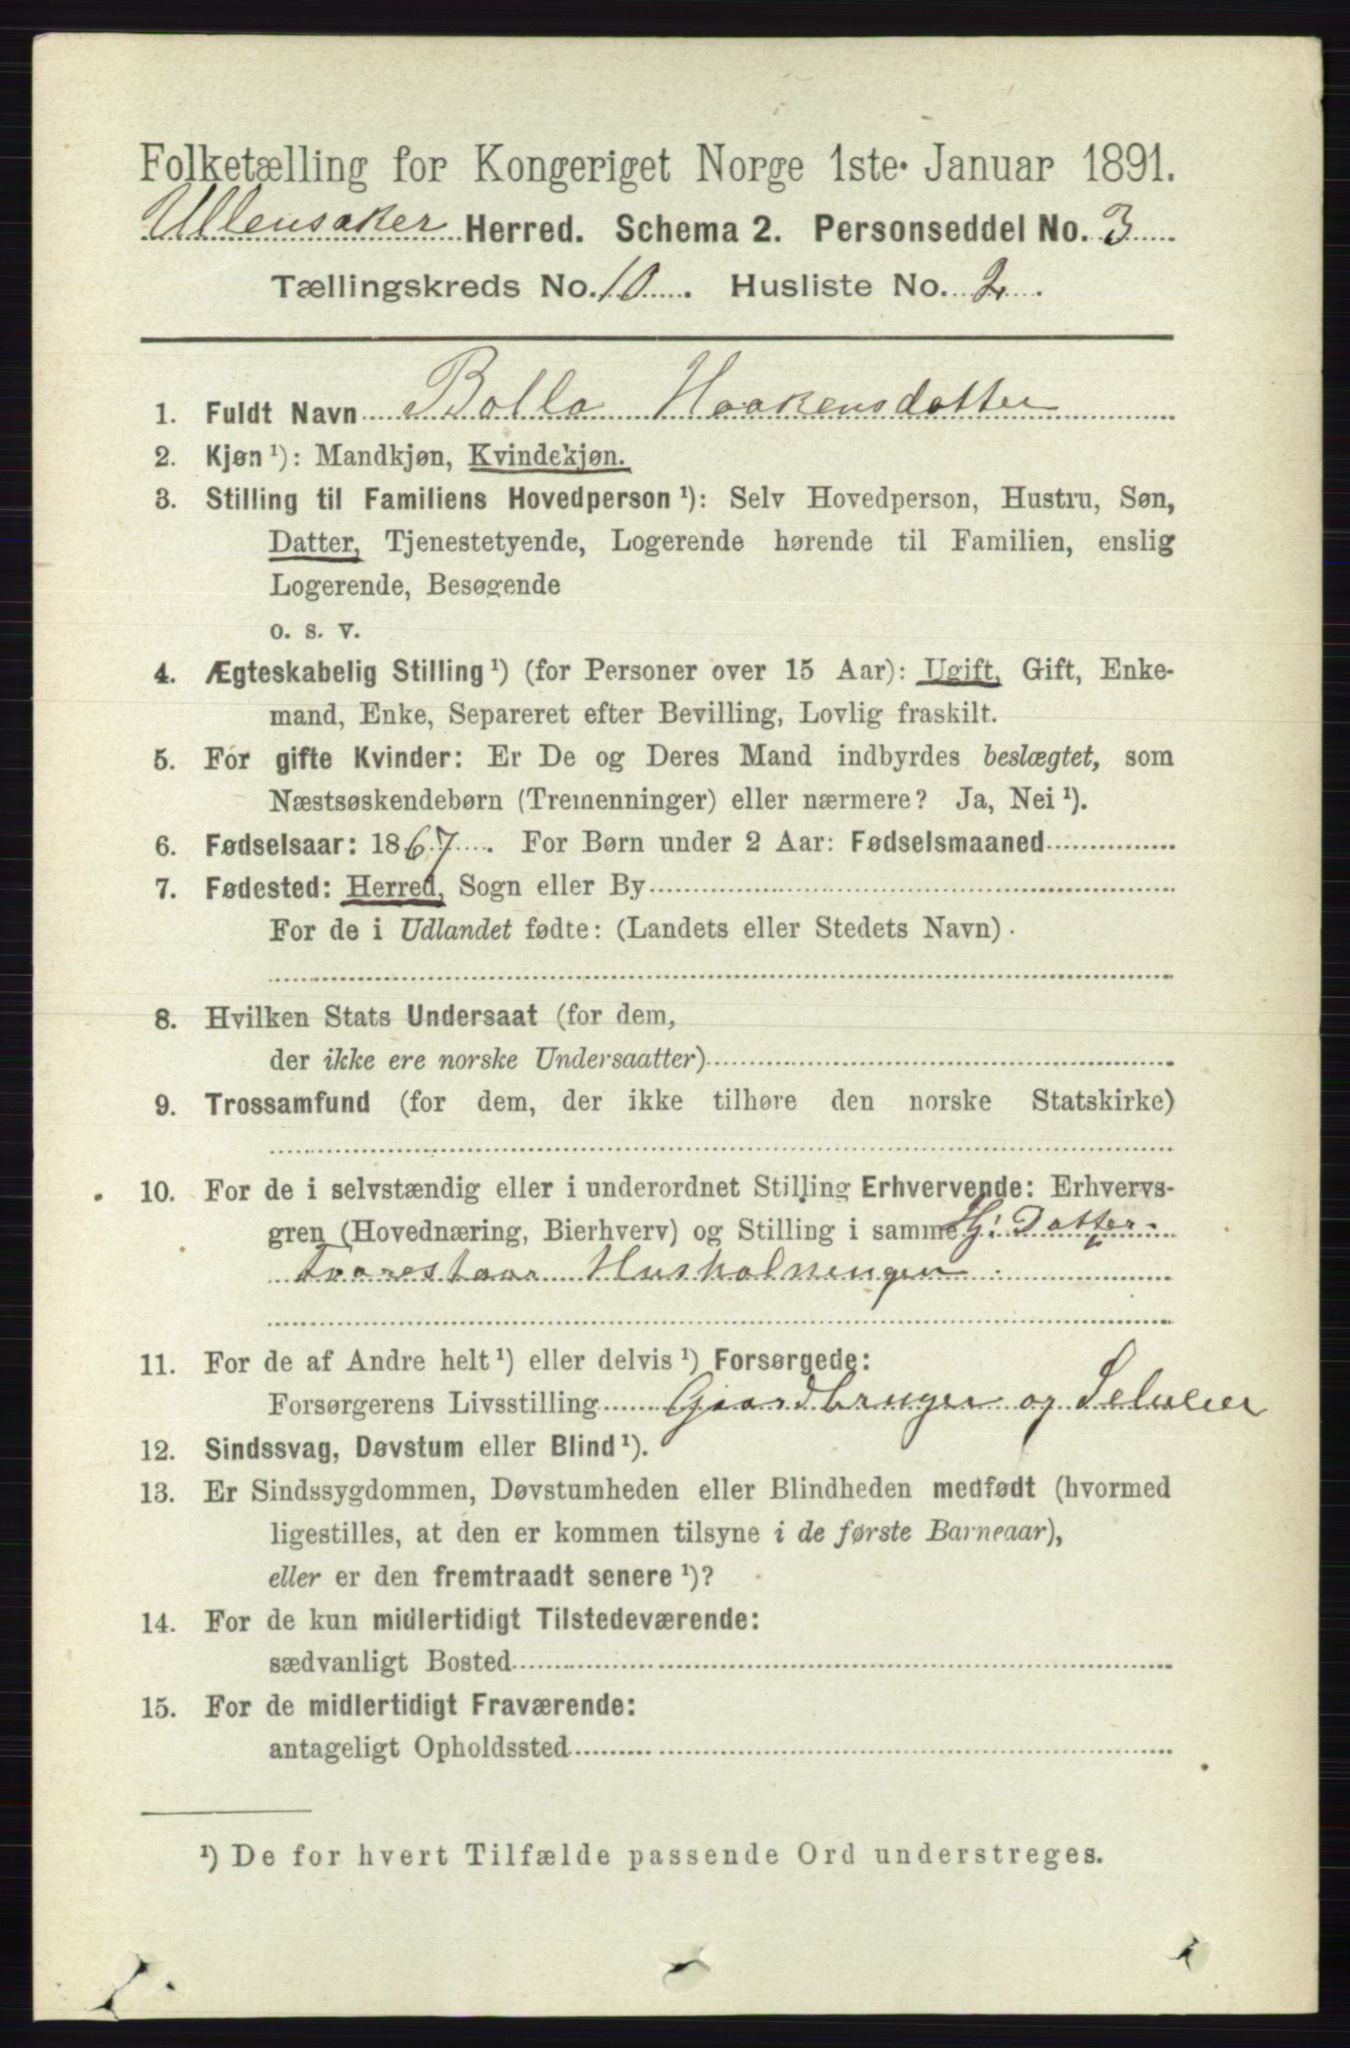 Folketælling for Kongeriget Norge 1ste Januar 1891.
Ullensaker Herred. Schema 2. Personseddel No. 3
Tællingskreds No. 10. Husliste No. 2.
1. Fuldt Navn Bolla Haakensdatter
2. Kjøn ¹): Mandkjøn, Kvindekjøn.
3. Stilling til Familiens Hovedperson ¹): Selv Hovedperson, Hustru, Søn,
Datter, Tjenestetyende, Logerende hørende til Familien, enslig
Logerende, Besøgende
o. s. v.
4. Ægteskabelig Stilling ¹) (for Personer over 15 Aar): Ugift, Gift, Enke-
mand, Enke, Separeret efter Bevilling, Lovlig fraskilt.
5. For gifte Kvinder: Er De og Deres Mand indbyrdes beslægtet, som
Næstsøskendebørn (Tremenninger) eller nærmere? Ja, Nei ¹).
6. Fødselsaar: 1867. For Børn under 2 Aar: Fødselsmaaned
7. Fødested: Herred, Sogn eller By
For de i Udlandet fødte: (Landets eller Stedets Navn)
8. Hvilken Stats Undersaat (for dem,
der ikke ere norske Undersaatter)
9. Trossamfund (for dem, der ikke tilhøre den norske Statskirke)
10. For de i selvstændig eller i underordnet Stilling Erhvervende: Erhvervs-
gren (Hovednæring, Bierhverv) og Stilling i samme Hj: Datter
Forestaar Husholningen
11. For de af Andre helt ¹) eller delvis ¹) Forsørgede:
Forsørgerens Livsstilling Gaardbruger og Selveier
12. Sindssvag, Døvstum eller Blind ¹).
13. Er Sindssygdommen, Døvstumheden eller Blindheden medfødt (hvormed
ligestilles, at den er kommen tilsyne i de første Barneaar),
eller er den fremtraadt senere ¹)?
14. For de kun midlertidigt Tilstedeværende:
sædvanligt Bosted
15. For de midlertidigt Fraværende:
antageligt Opholdssted
¹) De for hvert Tilfælde passende Ord understreges.